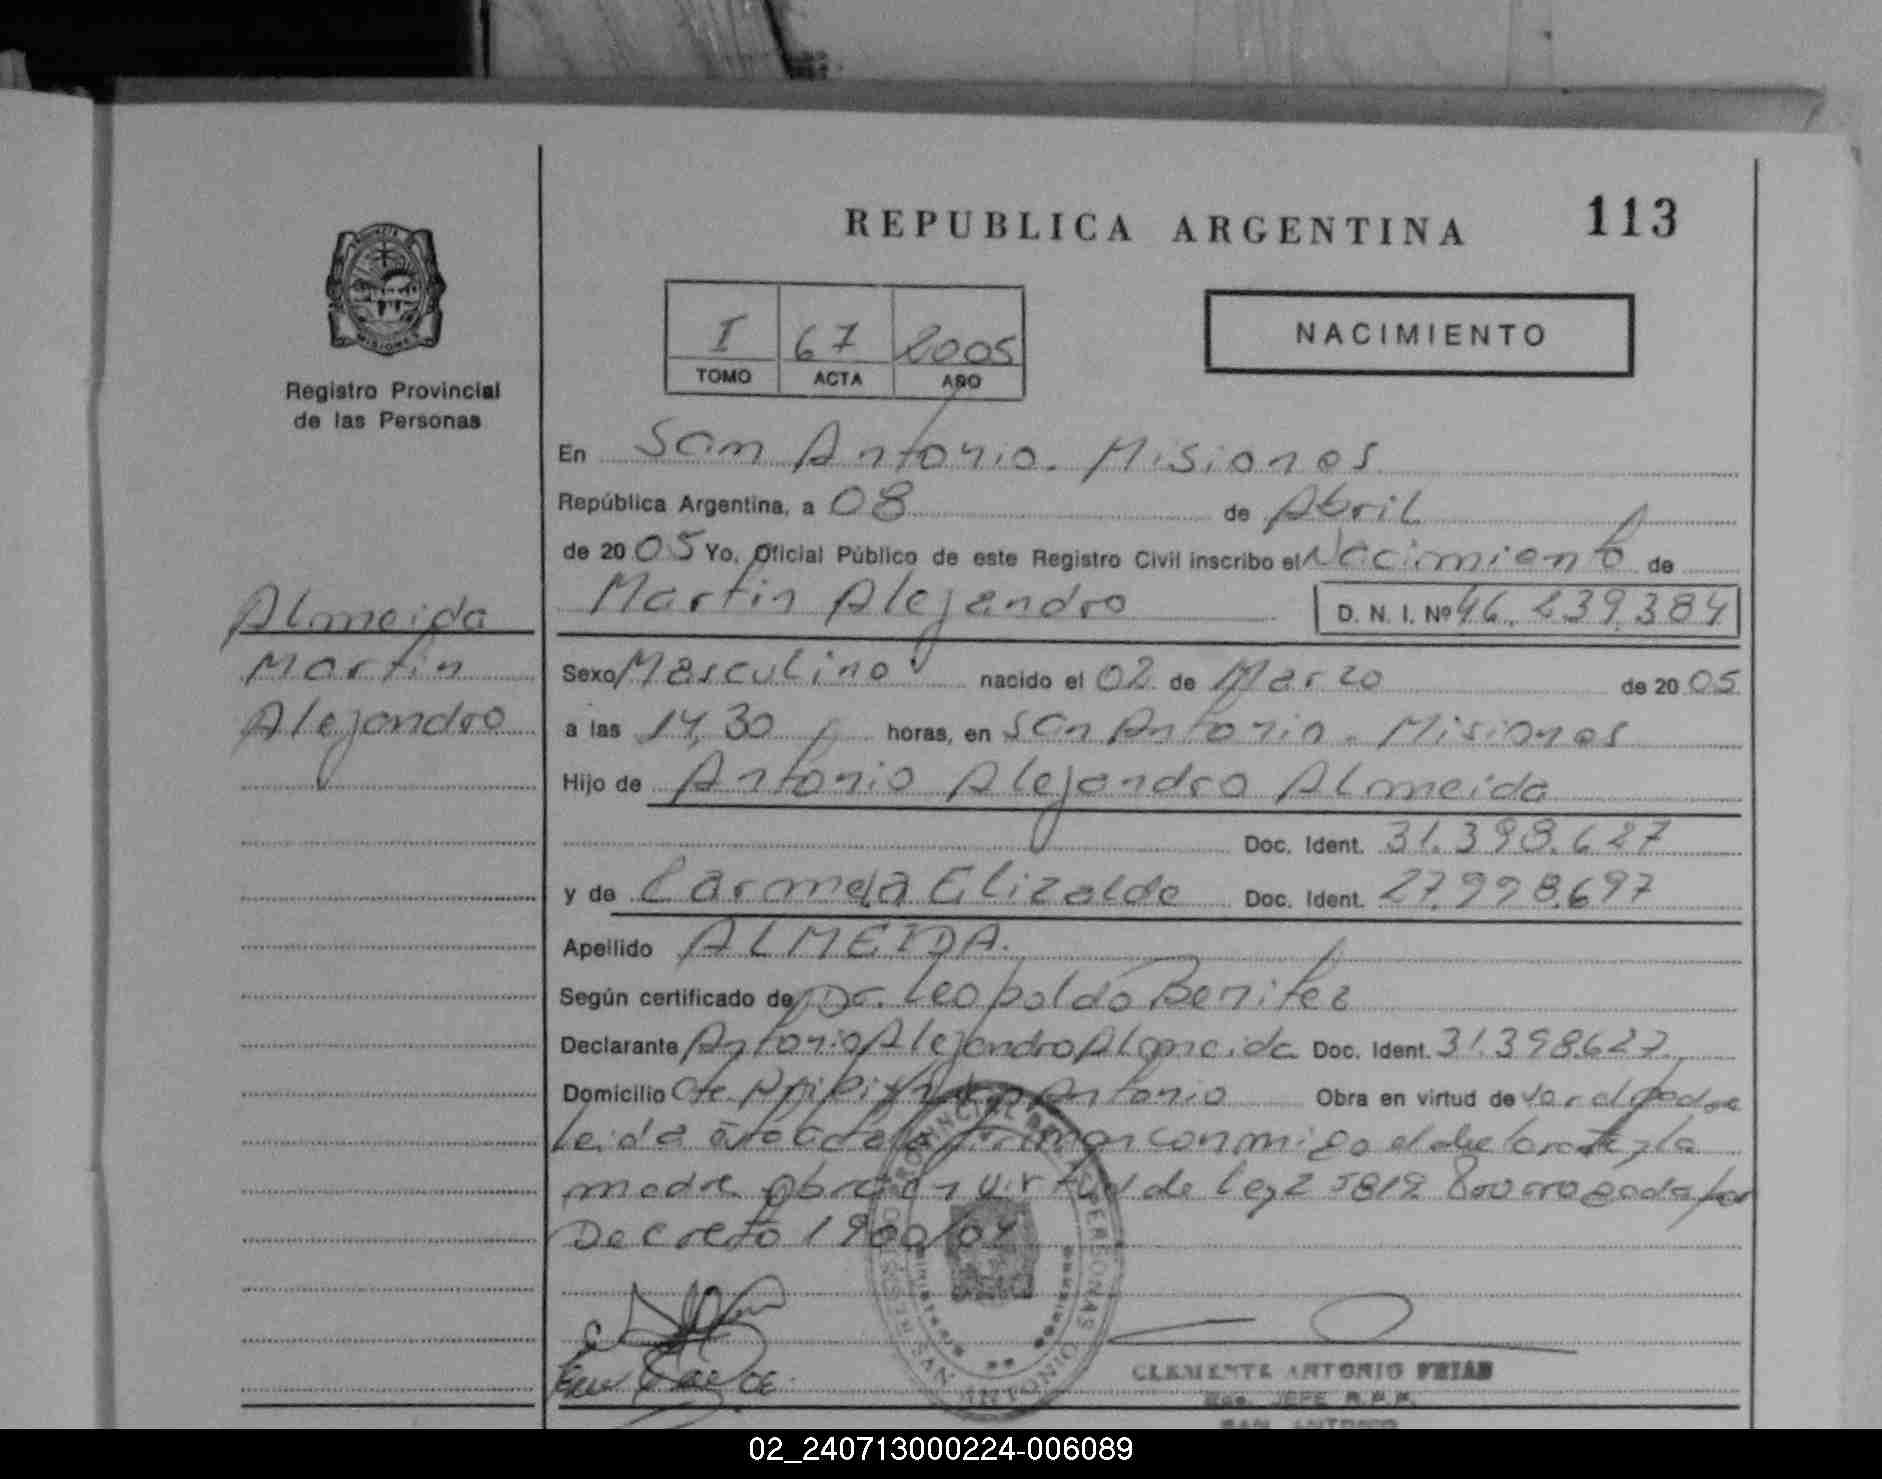 REPUBLICA ARGENTINA 113
I 67 2005
TOMO ACTA AÑO
NACIMIENTO
PROVINCIA DE MISIONES
Registro Provincial
de las Personas
Almeida
Martin
Alejandro
En San Antonio. Misiones
República Argentina, a 08 de Abril
de 2005 Yo, Oficial Público de este Registro Civil inscribo el Nacimiento de
Martin Alejandro D. N. I. Nº 46.239.384
Sexo Masculino nacido el 02 de Marzo de 2005
a las 14,30 horas, en San Antonio. Misiones
Hijo de Antonio Alejandro Almeida
Doc. Ident. 31.398.627
y de Carmela Elizalde Doc. Ident. 27.998.697
Apellido ALMEIDA.
Según certificado de Dr. Leopoldo Benitez
Declarante Antonio Alejandro Almeida Doc. Ident. 31.398.627
Domicilio Antonio Obra en virtud de
leida acta firman conmigo el y la
madre obra en virtud de ley 25819 por
Decreto 1900/04
CLEMENTE ANTONIO FRIAS
JEFE R.P.P.
SAN ANTONIO
02_240713000224-006089